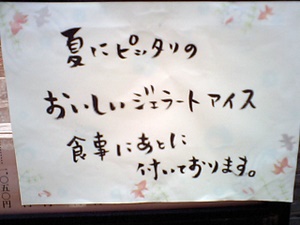 夏にピッタリの
おいしいジェラートアイス
食事にあとに
付いております。
一〇五〇円